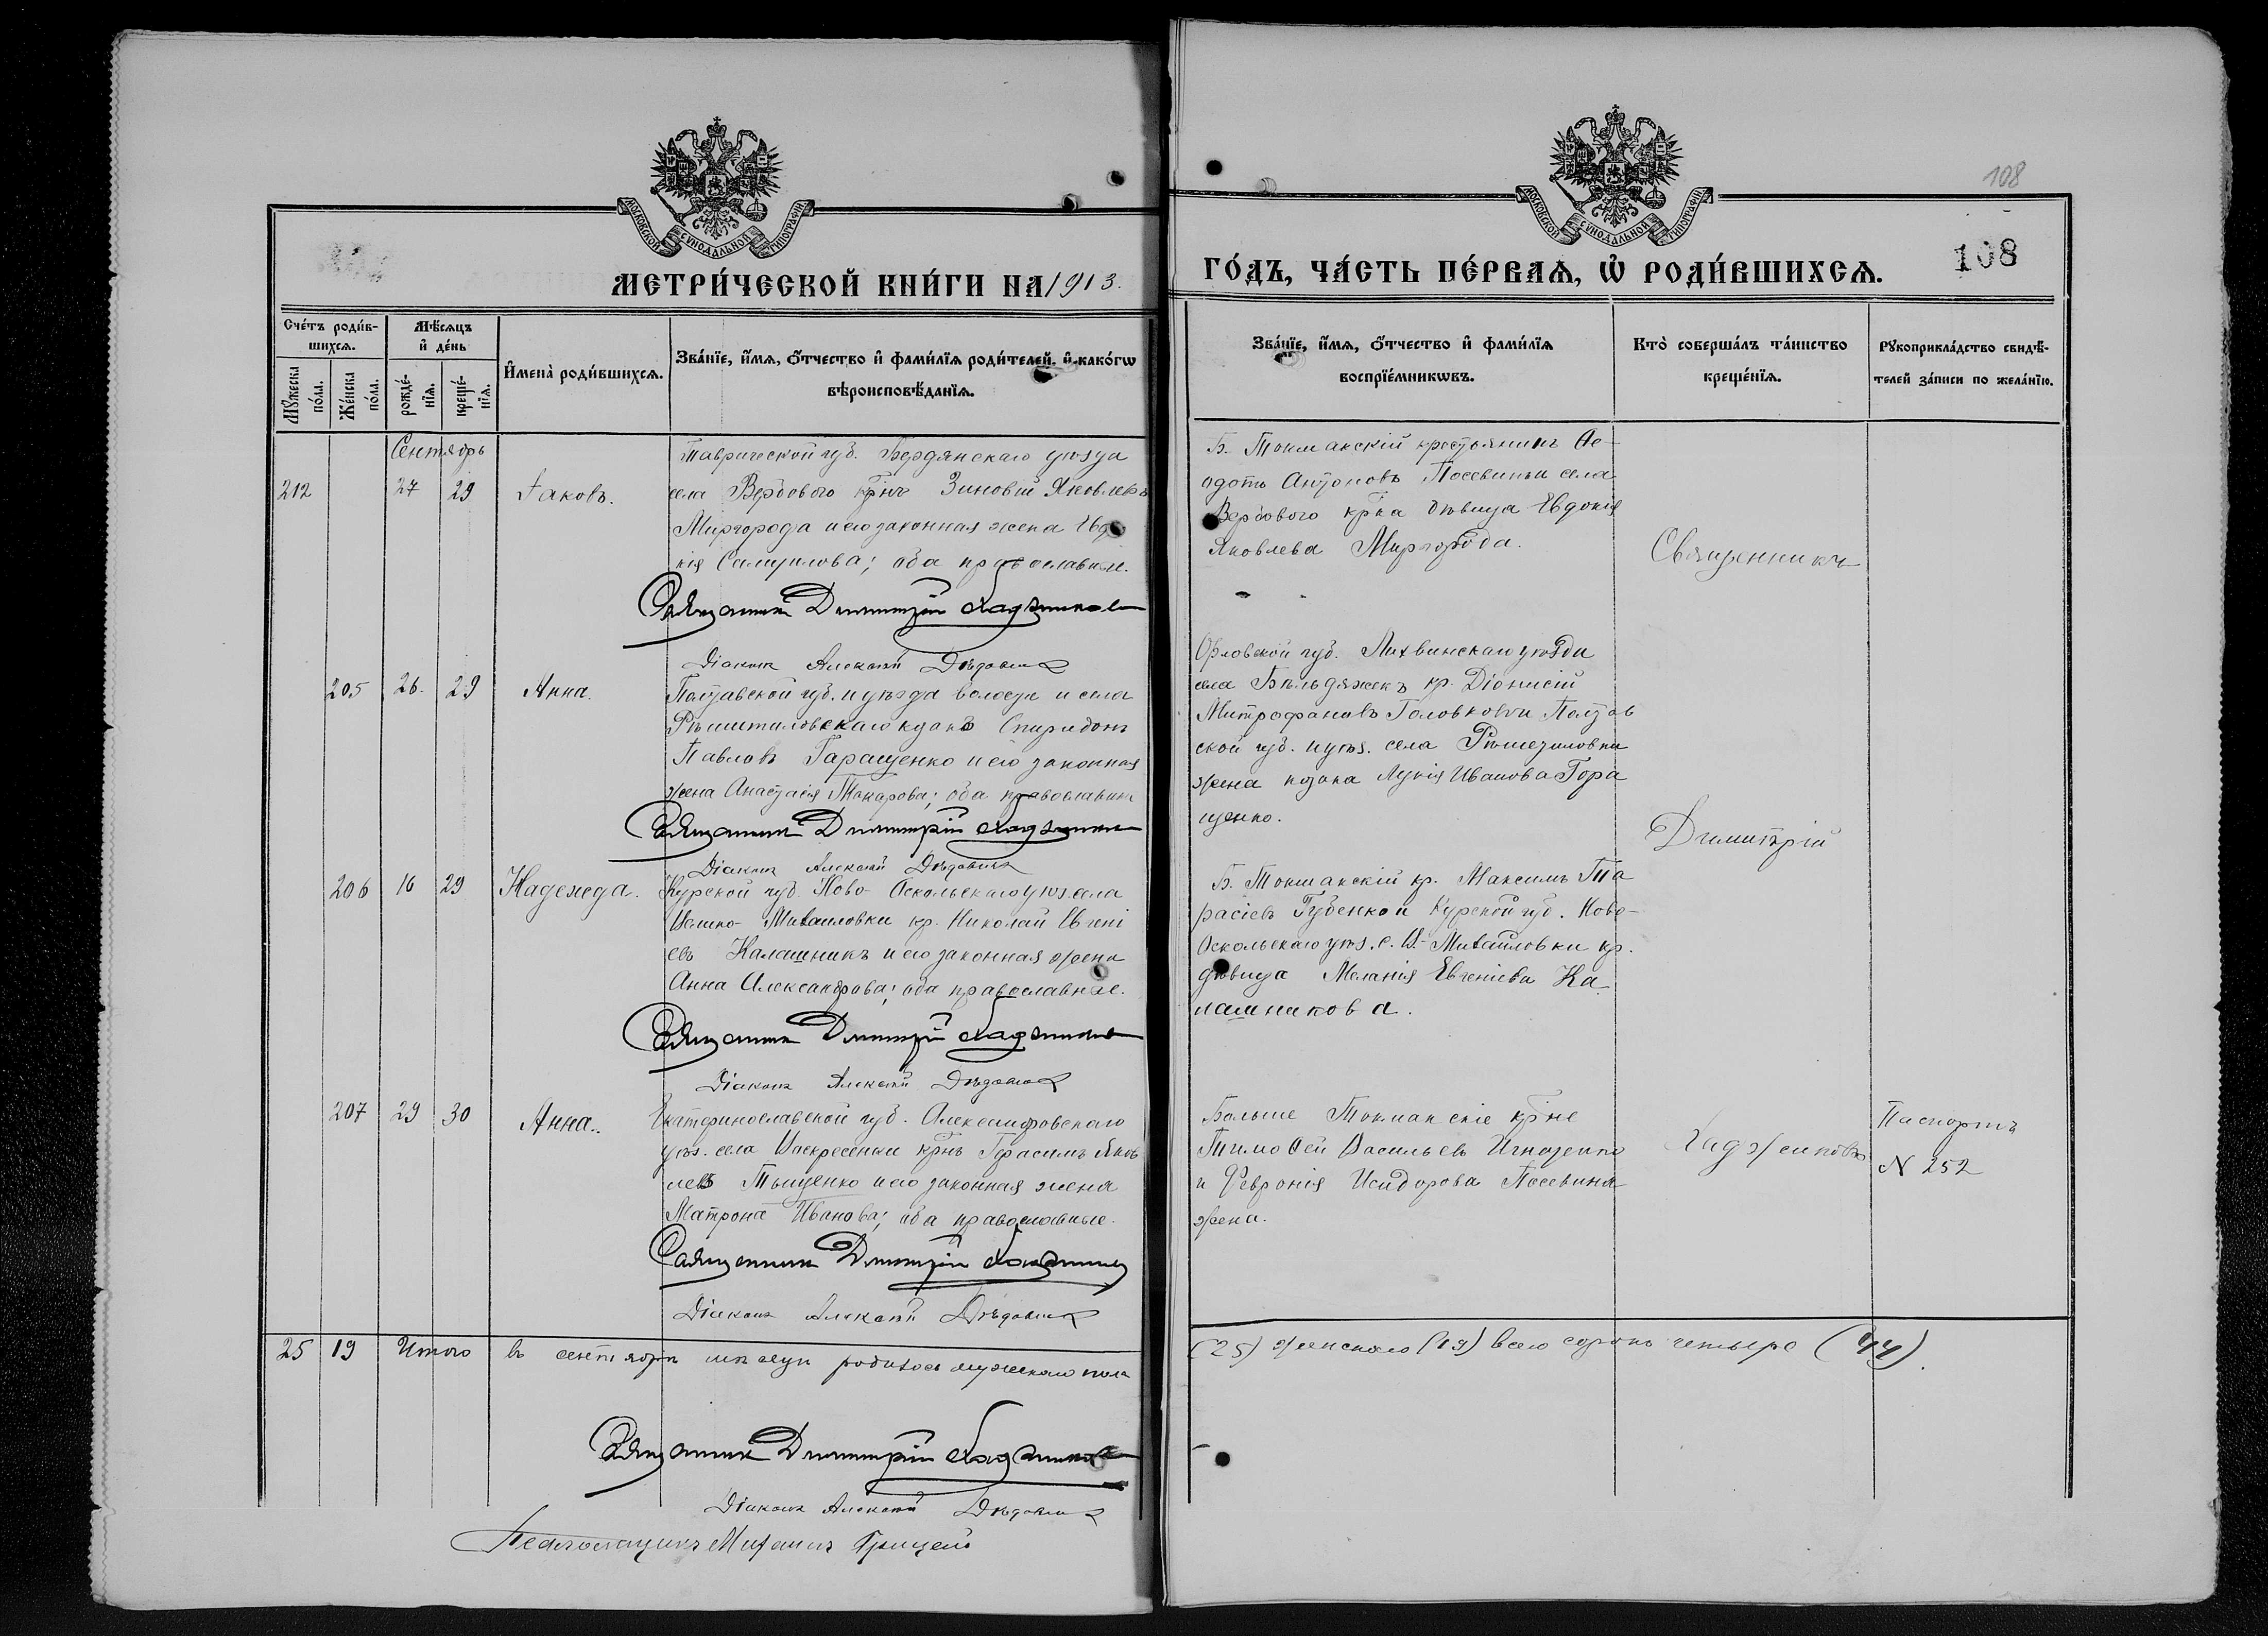 МОСКОВСКОЙ СѴНОДАЛЬНОЙ ТИПОГРАФІИ
МЕТРИ́ЧЕСКОЙ КНИ́ГИ НА 1913.
Сче́тъ роди́в-
шихсѧ.
Мꙋ́жеска по́ла.
Же́нска по́ла.
Мѣ́сѧцъ
и҆ де́нь
рожде́-
нїѧ.
креще́-
нїѧ.
И҆мена̀ роди́вшихсѧ.
Зва́нїе, и҆́мѧ, ѻ҆́тчество и҆ фами́лїѧ роди́телей, и҆ како́гѡ
вѣроисповѣ́данїѧ.
Сентябрь
212 27 29 Іаковъ.
Таврической губ. Бердянскаго уѣзда
села Вербового крнъ Зиновій Яковлевъ
Миргорода и его законная жена Евдо
кія Самуилова; оба православные.
Священникъ Димитрій Хаджиновъ
Діаконъ Алексѣй
205 26. 29 Анна.
Полтавской губ. и уѣзда волости и села
Рѣшетиловскаго казакъ Спиридонъ
Павловъ Гаращенко и его законная
жена Анастасія Макарова; оба православные
Священникъ Димитрій Хаджиновъ
Діаконъ Алексѣй
206 16 29 Надежда.
Курской губ. Ново-Оскольскаго уѣз. села
Михаиловки кр. Николай Евгені
евъ Калашникъ и его законная жена
Анна Александрова; оба православные.
Священникъ Димитрій Хаджиновъ
Діаконъ Алексѣй
207 29 30 Анна.
Екатеринославской губ. Александровскаго
уѣз. села Воскресенки крнъ Герасимъ Яков
левъ Тыщенко и его законная жена
Матрона Иванова; оба православные.
Священникъ Димитрій Хаджиновъ
Діаконъ Алексѣй
25 19 Итого въ сентябрѣ мѣсяцѣ родилось мужескаго пола
Священникъ Димитрій Хаджиновъ
Діаконъ Алексѣй
Псаломщикъ Михаилъ
108
МОСКОВСКОЙ СѴНОДАЛЬНОЙ ТИПОГРАФІИ
ГО́ДЪ, ЧА́СТЬ ПЕ́РВАѦ, Ѡ҆ РОДИ́ВШИХСѦ.
108
Зва́нїе, и҆́мѧ, ѻ҆́тчество и҆ фами́лїѧ
воспрїе́мникѡвъ.
Кто̀ соверша́лъ та́инство
креще́нїѧ.
Рꙋкоприкла́дство свидѣ́-
телей за́писи по жела́нїю.
Б. Токмакскій крестьянинъ Ѳе-
одотъ Антоновъ Посевинъ и села
Вербового крка дѣвица Евдокія
Яковлева Миргорода.
Священникъ
Орловской губ. Лихвинскаго уѣзда
села кр. Діонисій
Митрофановъ Головковъ и Полтав
ской губ. и уѣз. села Рѣшетиловки
жена козака Лукія Иванова Гора
щенко.
Димитрій
Б. Токмакскій кр. Максимъ Та
расіевъ Губенко и Курской губ. Ново-
Оскольскаго уѣз. с. В.-Михаиловки кр.
дѣвица Меланія Евгеніева Ка
лашникова.
Больше Токмакскіе крне
Тимоѳей Васильевъ Игнатенко
и Февронія Исидорова Посевина
жена.
Хаджиновъ
Паспортъ
N 252
(25) женскаго (19) всего сорокъ четыре (44).